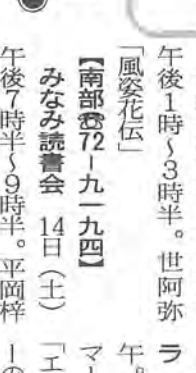 午後1時～3時半。世阿弥
「風姿花伝」
【南部☎72－九一九四】
みなみ読書会　14日（土）
午後7時半～9時半。平岡梓
ラ
午。
マー
「エ
ーの